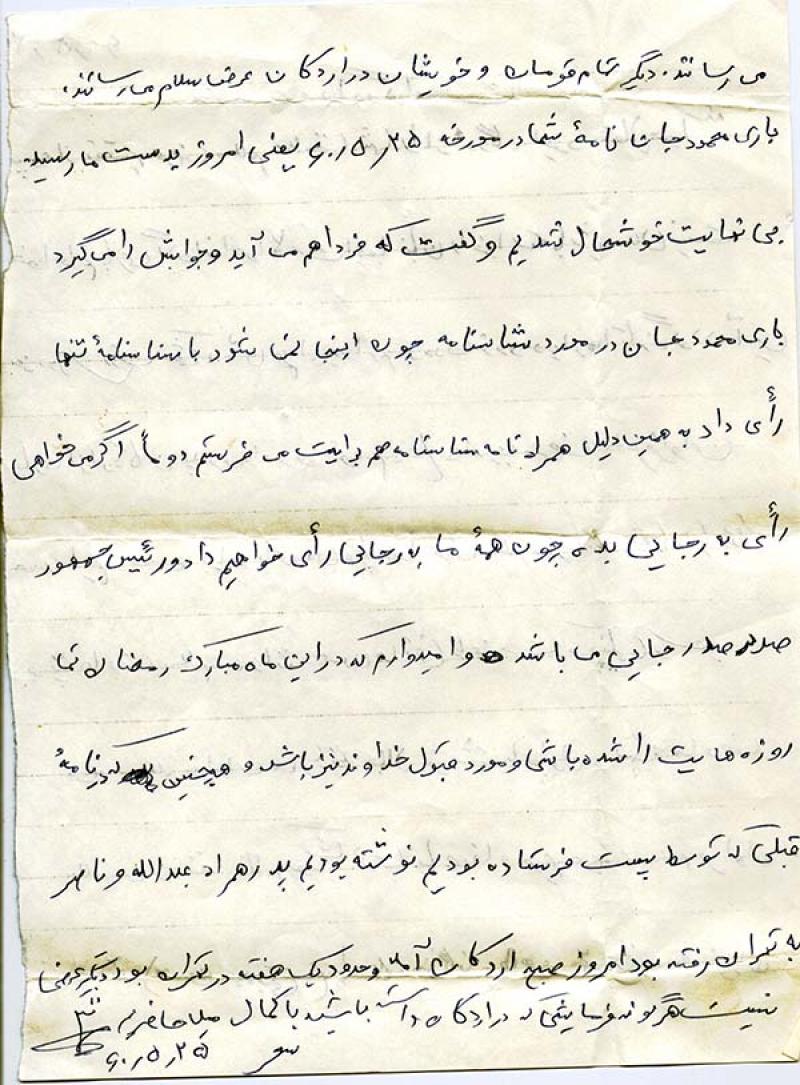 می رسانند. دیگر تمام قومان و خویشان در اردکان عرض سلام می رسانند.
باری محمود جان نامهٔ شما در مورخه ۶۰٫۵٫۲۵ یعنی امروز بدست ما رسید
بی نهایت خوشحال شدیم و گفت که فردا هم می آید و جوابش را می گیرد
باری محمود جان در مورد شناسنامه چون اینجا نمی شود با شناسنامهٔ تنها
رأی داد به همین دلیل همراه نامه شناسنامه هم برایت می فرستم دوماً اگر می خواهی
رأی به رجایی بده چون همهٔ ما به رجایی رأی خواهیم داد و رئیس جمهور
صد در صد رجایی می باشد و امیدوارم که در این ماه مبارک رمضان تما
روزه هایت را شده باشی و مورد قبول خداوند نیز باشد و همچنین که در نامهٔ
قبلی که توسط پست فرستاده بودیم نوشته بودیم پدر همراه عبدالله و ناصر
به تهران رفته بود امروز صبح اردکان آمد و حدود یک هفته در تهران بود دیگر عرضی
نیست هرگونه فرمایشی که در اردکان داشته باشید با کمال میل حاضریم
۶۰٫۵٫۲۵